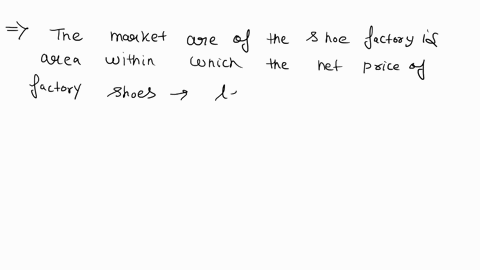 => The market are of the shoe factory is
area within which the net price of
factory shoes → l